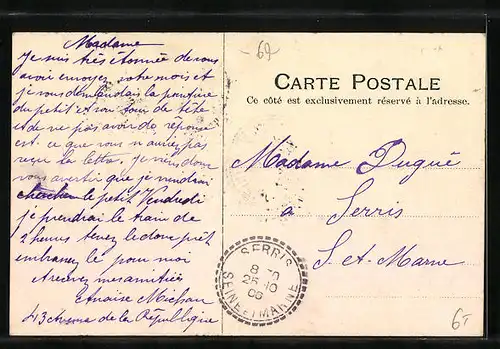 Madame
Je suis très étonnée de vous
avoir envoyez votre mois et
je vous demandais la pointure
du petit et son tour de tête
et de ne pas avoir de réponse
est ce que vous n auriez pas
reçu la lettre. Je viens donc
vous avertir que je viendrai
chercher le petit Vendredi
je prendrai le train de
2 heures tenez le donc prêt
embrassez le pour moi
Recevez mes amitiés
Michau
43 Avenue de la République
69
CARTE POSTALE
Ce côté est exclusivement réservé à l'adresse.
Madame Dugué
a Serris
S. et Marne
SERRIS
8
25 10
06
SEINE ET MARNE